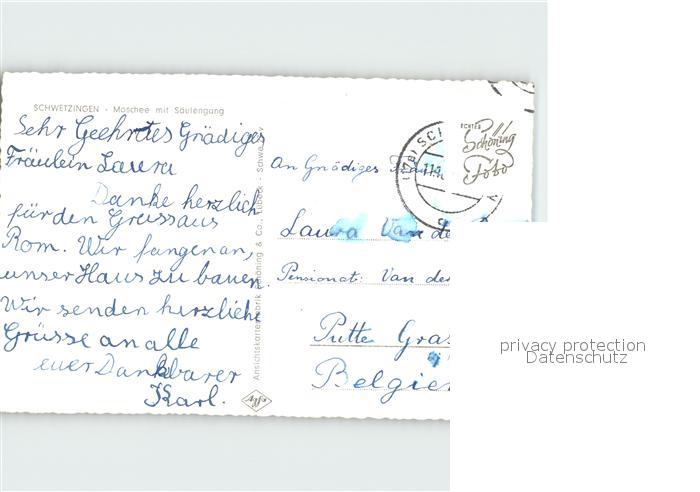 SCHWETZINGEN - Moschee mit Säulengang
Sehr Geehrtes Grädiges
Fräulein Laura
Danke herzlich
für den Gruss aus
Rom. Wir fangen an,
unser Haus zu bauen.
Wir senden herzliche
Grüsse an alle
euer Dankbarer
Karl.
Ansichtskartenfabrik Schöning & Co., Lübeck - Schwe
Agfa
ECHTES
Schöning
Foto
(17a) SC
An Gnädiges
Laura Van de
Pensionat: Van der
Putte Gras
Belgie
privacy protection
Datenschutz